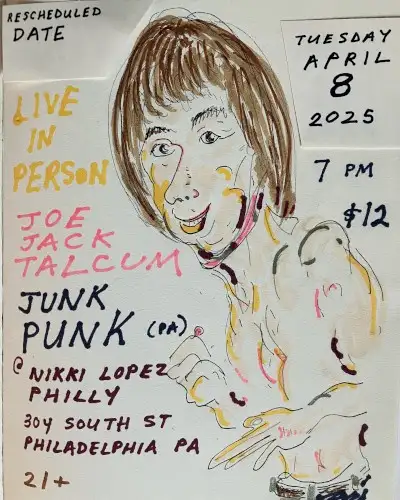 RESCHEDULED
DATE
TUESDAY
APRIL
8
2025
7 PM
$12
LIVE
IN
PERSON
JOE
JACK
TALCUM
JUNK
PUNK (PA)
@ NIKKI LOPEZ
PHILLY
304 SOUTH ST
PHILADELPHIA PA
21+